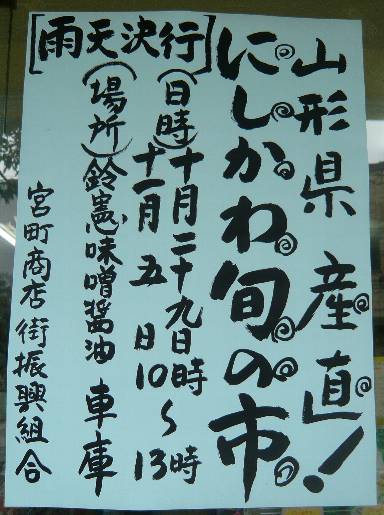 山形県産直!
にしかわ旬の市
(日時)十月二十九日時
十一月五日10〜13時
(場所)鈴憲味噌醤油車庫
[雨天決行]
宮町商店街振興組合